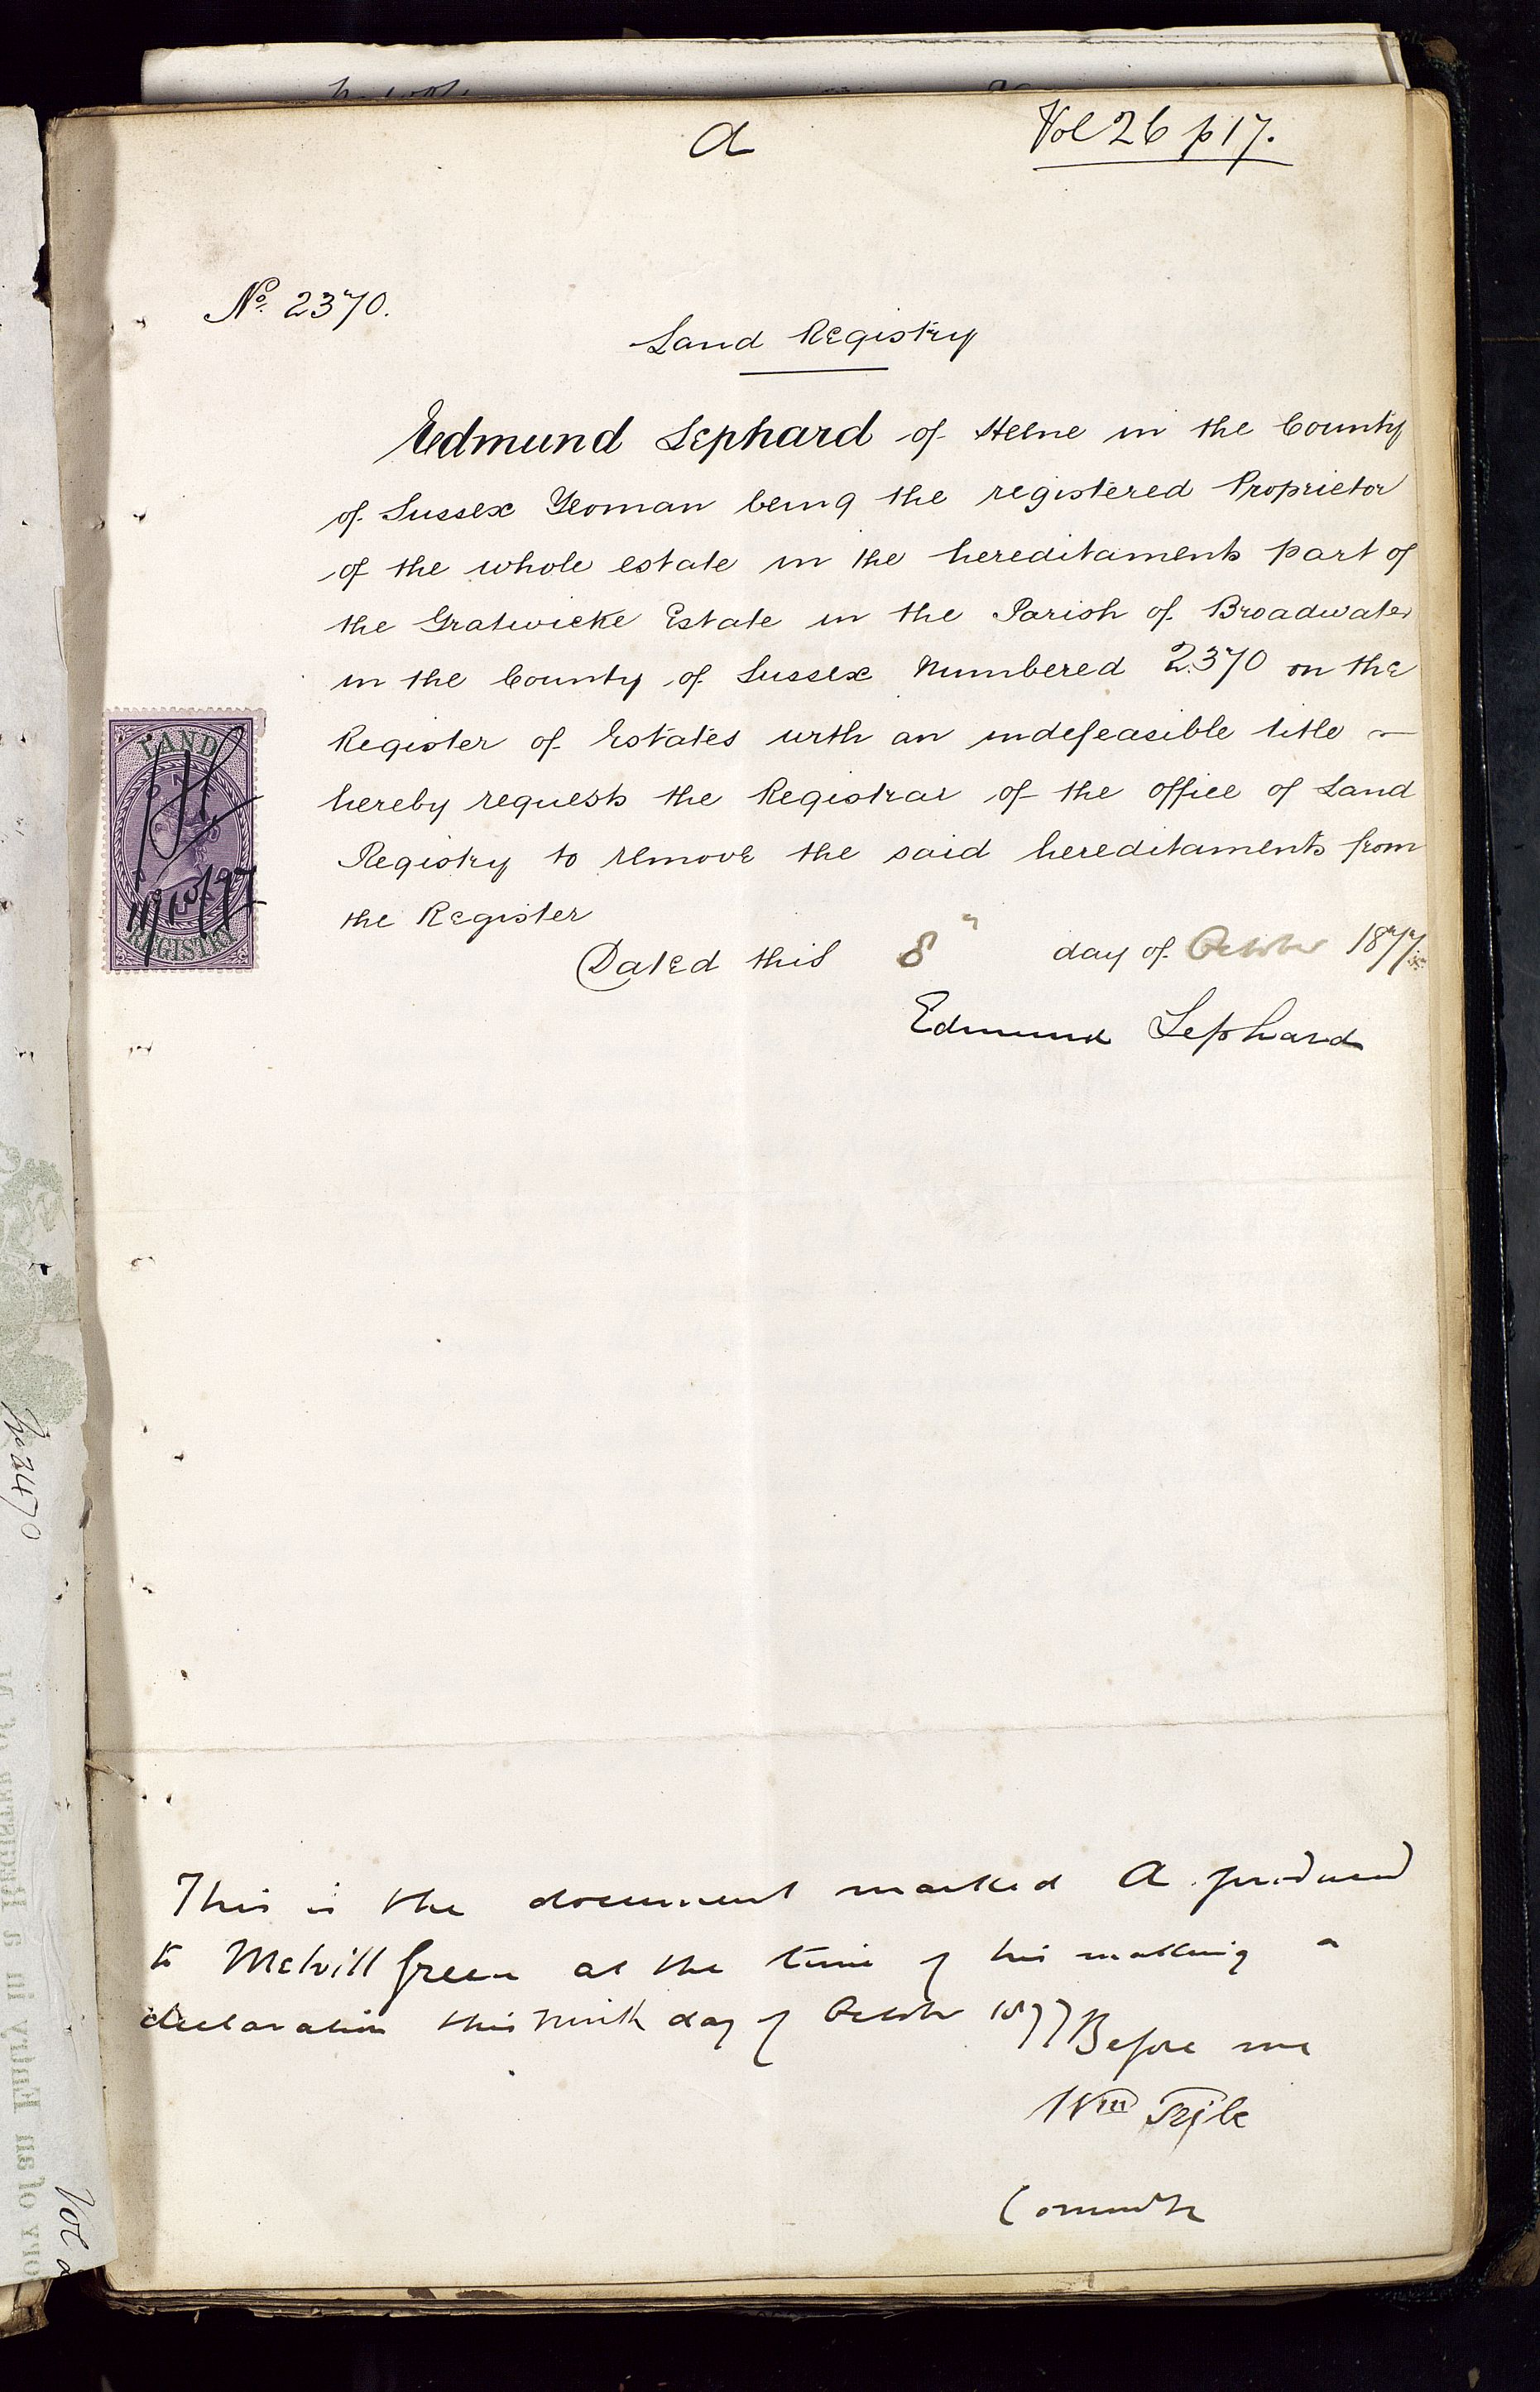 A
Vol 26 p 17.
No. 2370.
Land Registry
Edmund Lephard of Heene in the County
of Sussex Yeoman being the registered Proprietor
of the whole estate in the hereditaments part of
the Gratwicke Estate in the Parish of Broadwater
in the County of Sussex Numbered 2370 on the
Register of Estates with an indefeasible title
hereby requests the Registrar of the office of Land
Registry to remove the said hereditaments from
the Register
Dated this 8" day of October 1877.
Edmund Lephard
LAND
REGISTRY
This is the document marked A produced
to Melvill Green at the time of his making a
declaration this Ninth day of October 1877 Before me
Wm
No 2470
Vol